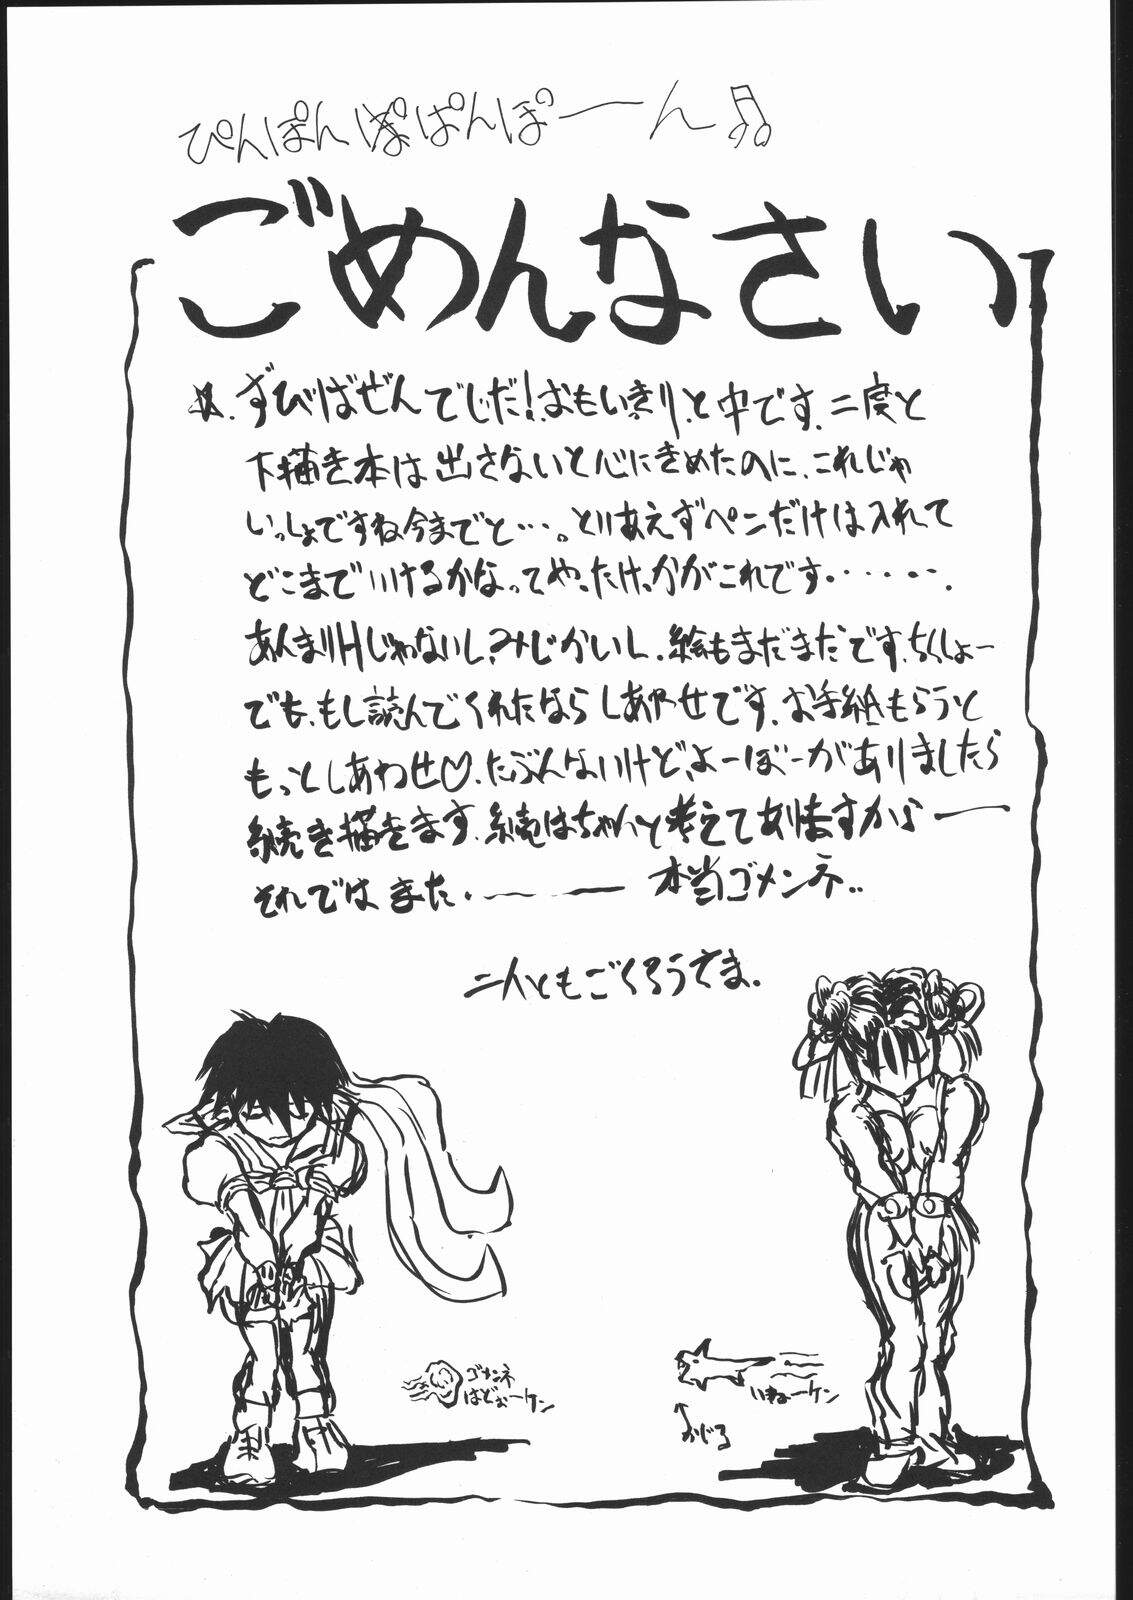 ぴんぽんぱぱんぽーん♫
ごめんなさい
☆.ずびばぜんでじだ!おもいっきり、と中です.二度と
下描き本は出さないと心にきめたのに、これじゃ
いっしょですね今までと…。とりあえずペンだけは入れて
どこまでいけるかなってやったけっかがこれです・・・・・・.
あんまりHじゃないし、みじかいし、絵もまだまだです、ちくしょー
でも、もし読んでくれたなら しあわせです.お手紙もらうと
もっとしあわせ♡.たぶんないけど、よーぼーがありましたら
続き描きます.続はちゃんと考えてありますからー
それでは また.ーー 本当ゴメンネ..
二人ともごくろうさま.
ゴメンネ
はどぉーケン
いきぉーケン
かじろ